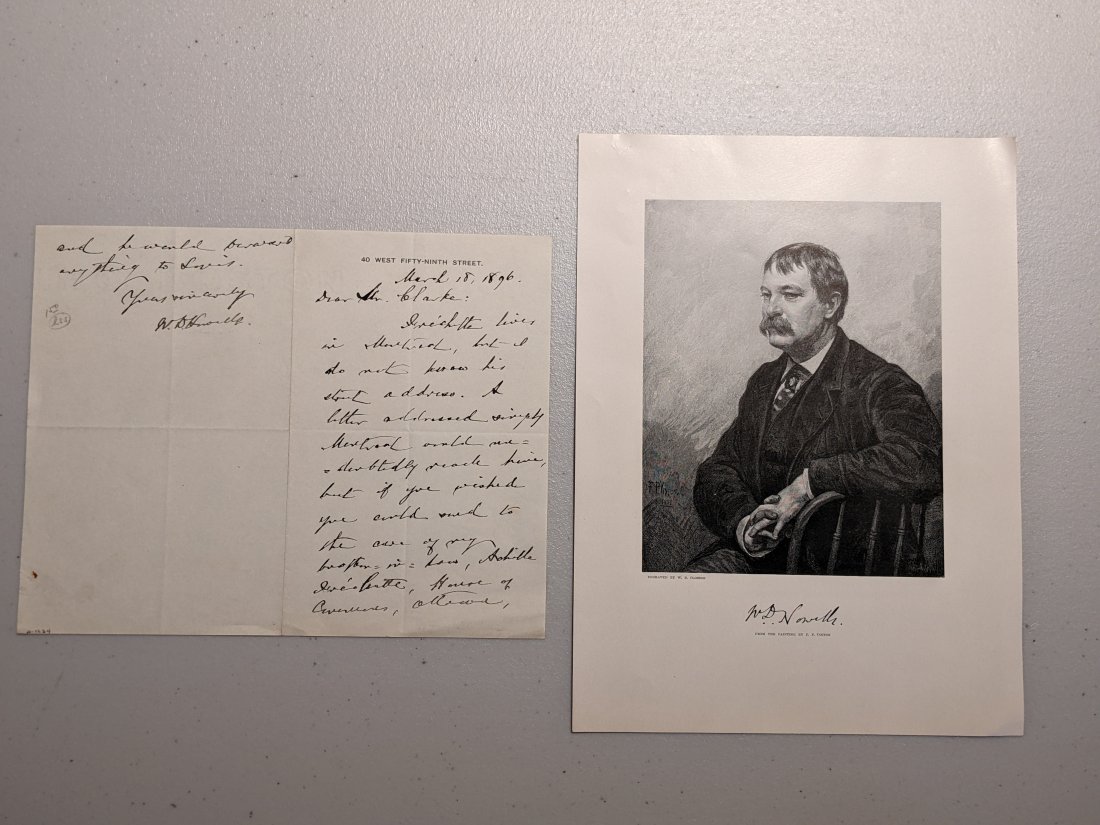 40 WEST FIFTY-NINTH STREET.
March 18, 1896.
Dear Mr. Clarke:
Fréchette lives
in Montreal, but I
do not know his
street address. A
letter addressed simply
Montreal would un=
=doubtedly reach him,
but if you wished
you could send to
the care of my
brother=in=law, Achille
Fréchette, House of
Commons, Ottawa,
and he would forward
anything to Louis.
Yours sincerely
W. D. Howells.
ENGRAVED BY W. B. CLOSSON
W. D. Howells.
FROM THE PAINTING BY F. P. VINTON